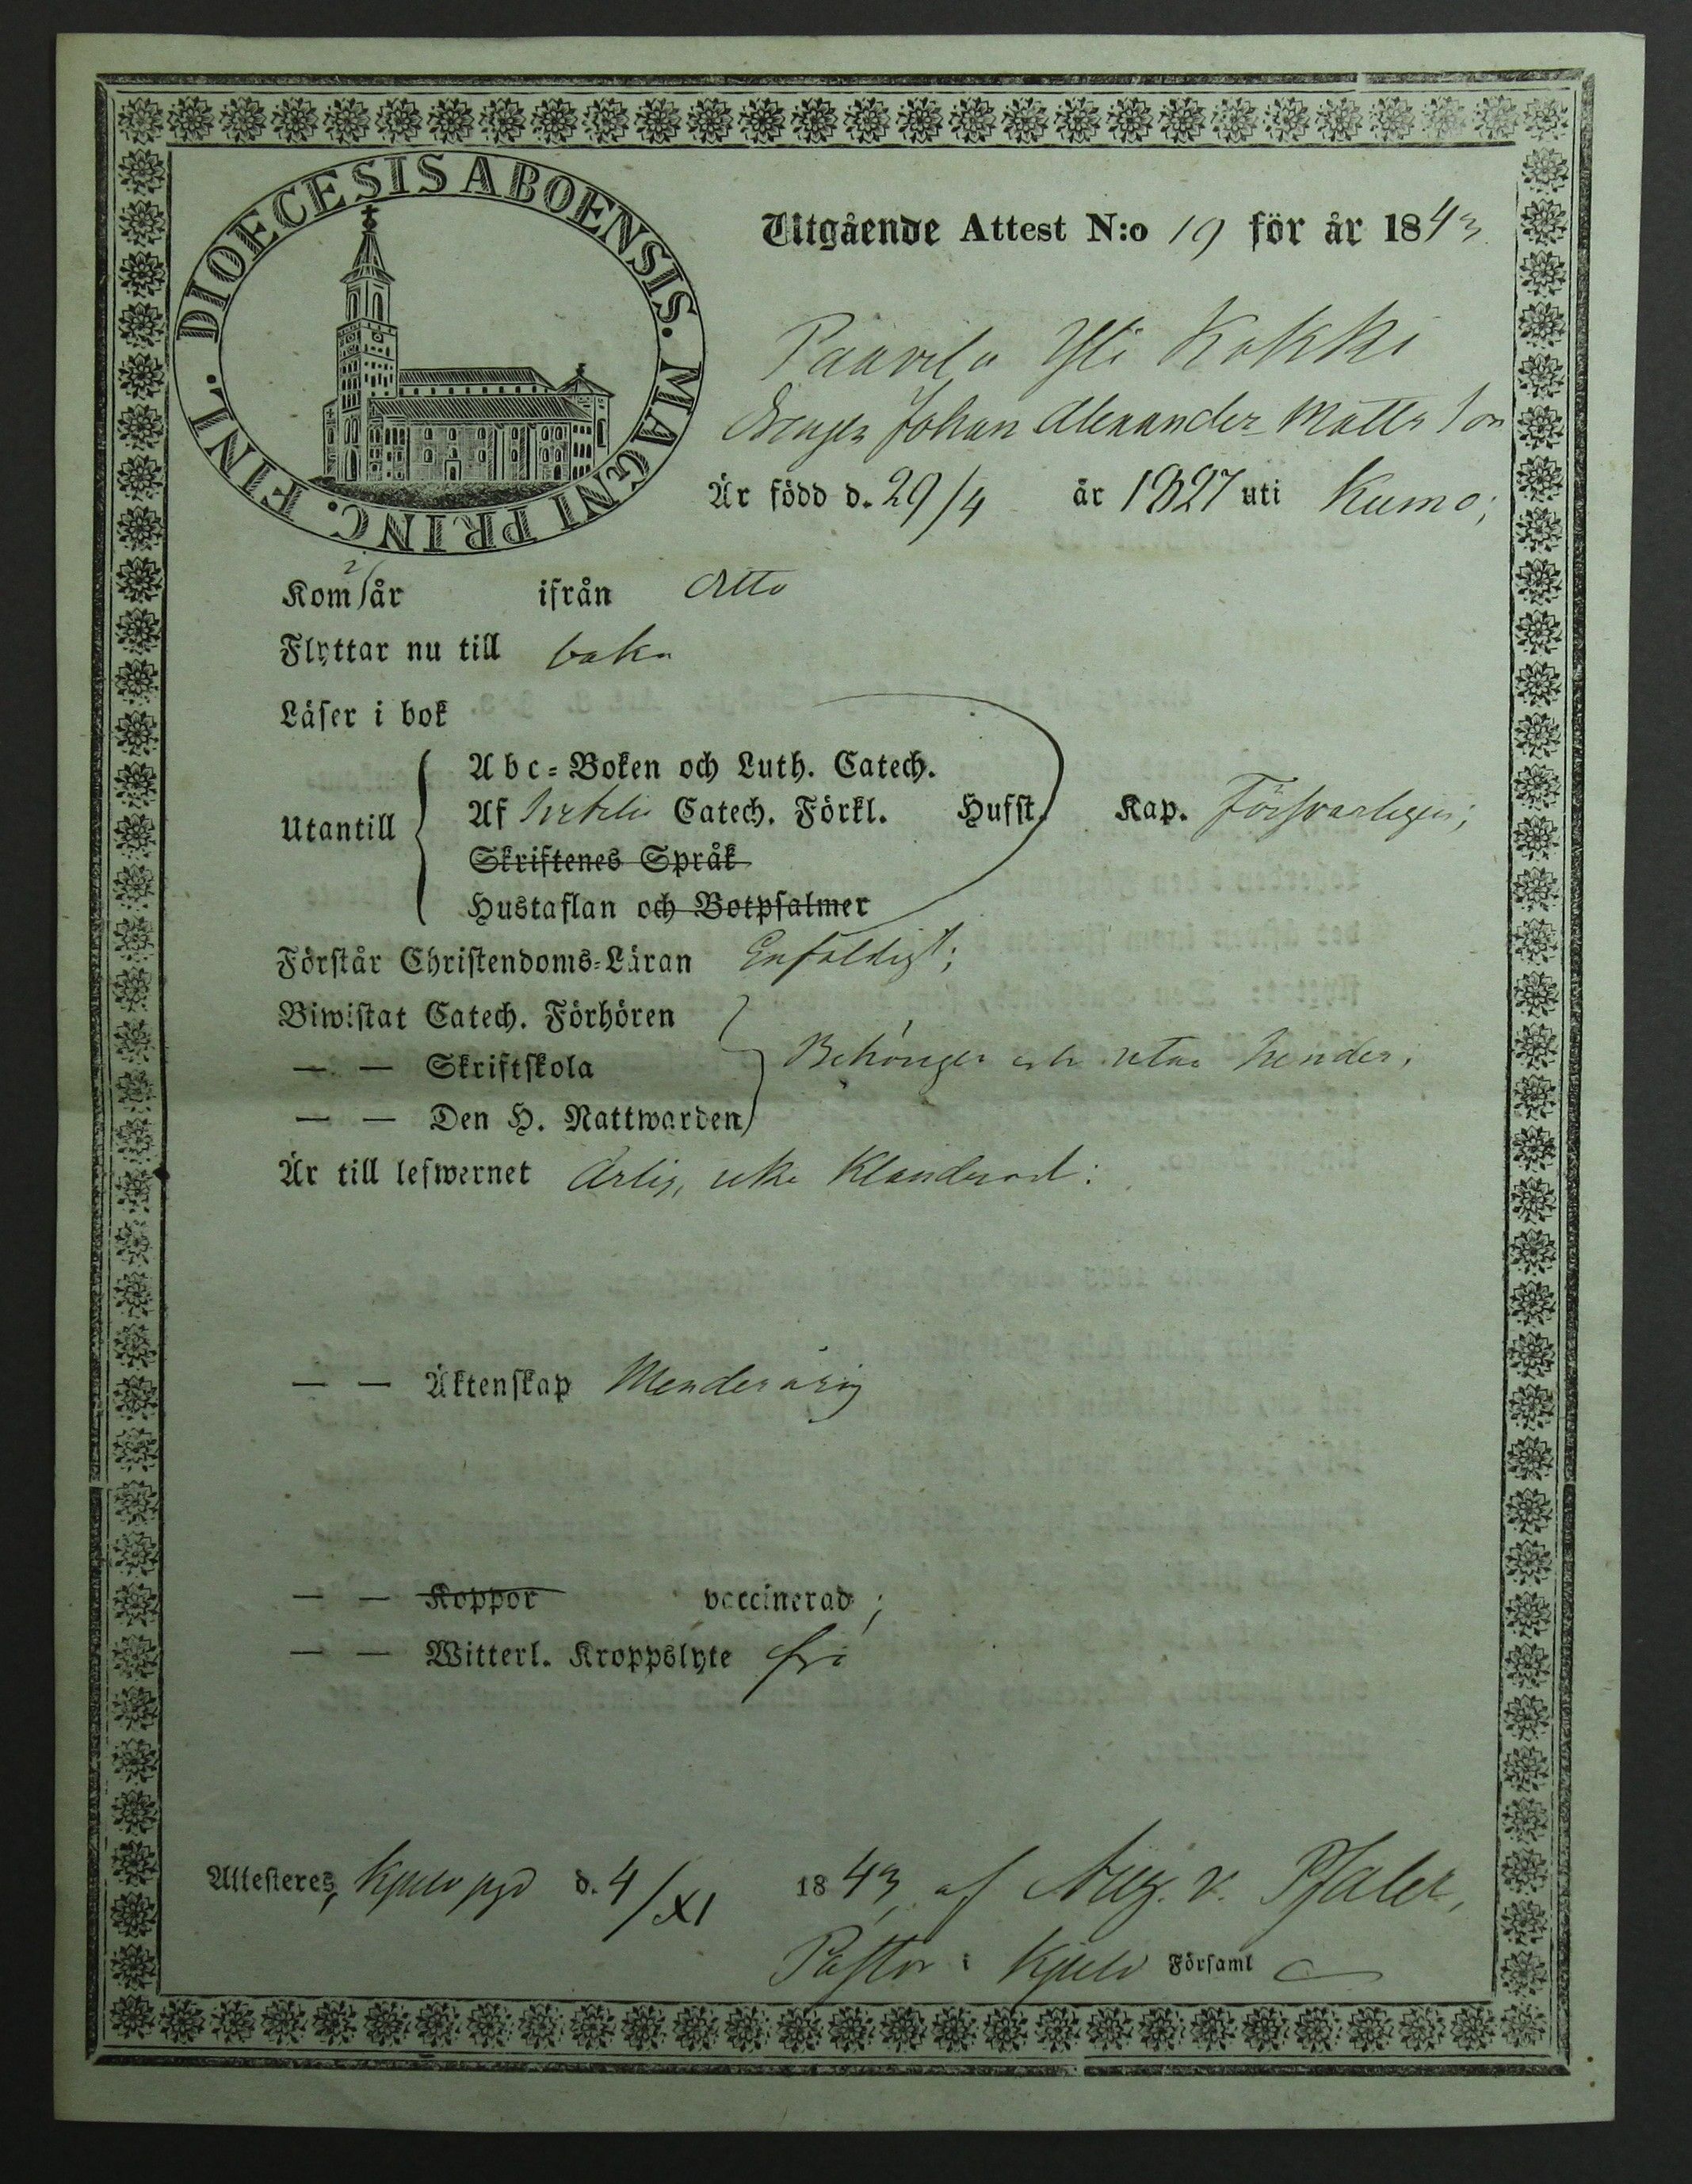 DIOECESIS ABOENSIS. MAGNI PRINC. FINL.
Utgående Attest N:o 19 för år 1843
Paavila Yli Kokki
Drengen Johan Alexander Matts Son
Är född d. 29/4 år 1827 uti Kumo;
Kom år ifrån ditto
Flyttar nu till baka
Läser i bok
Utantill
Abc-Boken och Luth. Catech.
Af Svebelii Catech. Förkl. Husst. Kap. Försvarligen;
Skriftenes Språk
Hustaflan och Botpsalmer
Förstår Christendoms-Läran Enfaldigt;
Biwistat Catech. Förhören
— — Skriftskola
— — Den H. Nattwarden
Behörigen och utan hinder;
Är till lefwernet Ärlig, icke Klandrad:
— — Äktenskap Minderårig
— — Koppor vaccinerad;
— — Witterl. Kroppslyte fri
Attesteres, Kjulo pgd d. 4/XI 1843, af Aug. v. Pfaler,
Pastor i Kjulo Församl